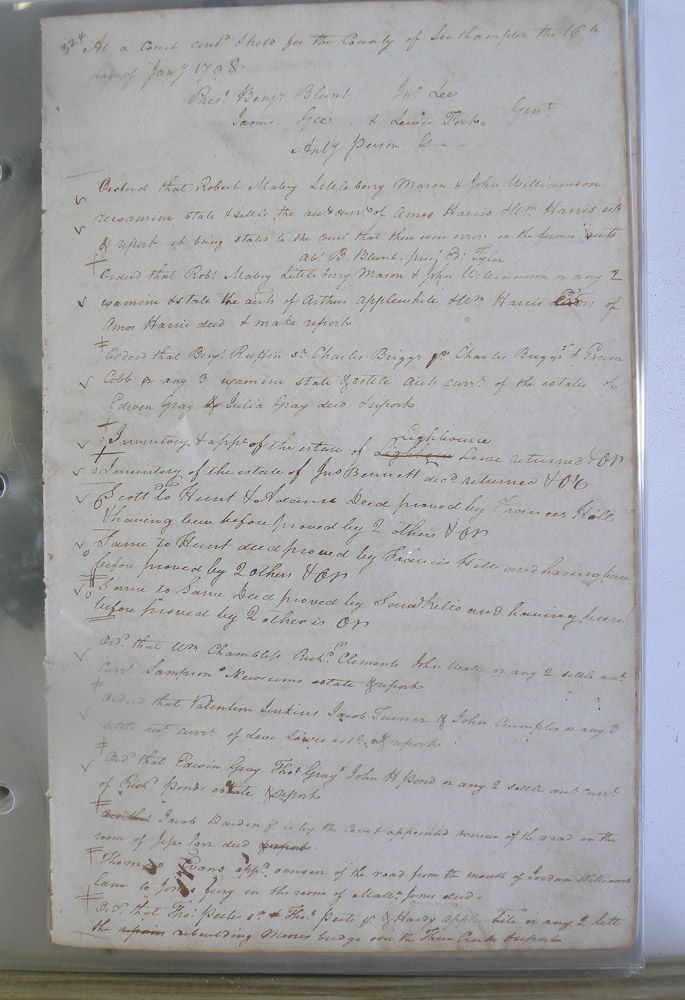 324
At a Court cont. & held for the County of Southampton the 16th
day of Jany 1798.
Prest. Benjn. Blunt Jno. Lee
James Gee & Lewis Gent.
Person
Ordered that Robert Mabry Littleberry Mason & John Williamson
reexamine state & settle the acct. curr. of Amos Harris & Wm. Harris
& report it being stated to the court that there were errors in the former
abst. B. Blunt. prest. Ed. Tyler
Ordered that Robt. Mabry Littleberry Mason & John Williamson or any 2
examine & state the accts of Arthur Applewhite & Wm. Harris Exors of
Amos Harris decd & make report
Ordered that Benjn. Ruffin sr. Charles Briggs Charles Briggs &
Cobb or any 3 examine state & settle accts curr. of the estates of
Edwin Gray & Julia Gray decd & report
Inventory & appt. of the estate of Lighbourne Lowe returned & OR
Inventory of the estate of Jno Bennett decd returned & OR
Scott to Hunt & Adams Deed proved by Frances Hill
& having been before proved by 2 others & OR
Same to Hunt deed proved by Francis Hill and having been
before proved by 2 others & OR
Same to Same Deed proved by Saml Kello and having been
before proved by 2 others is OR
Ord. that Wm Chambless Richd. Clements John or any 2 settle acct.
curr. Sampson Newsums estate & report
Ordered that Valentine Jenkins Jacob Turner & John Crumpler or any 3
settle acct curr. of Levi Lowes est. & report
Ord. that Edwin Gray Thos. Gray John H Pond or any 2 settle acct. curr.
of Richd Ponds estate & report
Jacob Darden jr is by the court appointed overseer of the road in the
room of Carr decd
Thomas Evans appd. overseer of the road from the mouth of Jordan Williams
lane to Jones ferry in the room of Jones decd.
Ord. that Thos. Peete sr. & Thos. Peete jr & Hardy Applewhite or any 2 lett
the repair rebuilding bridge over the Three Creeks & report